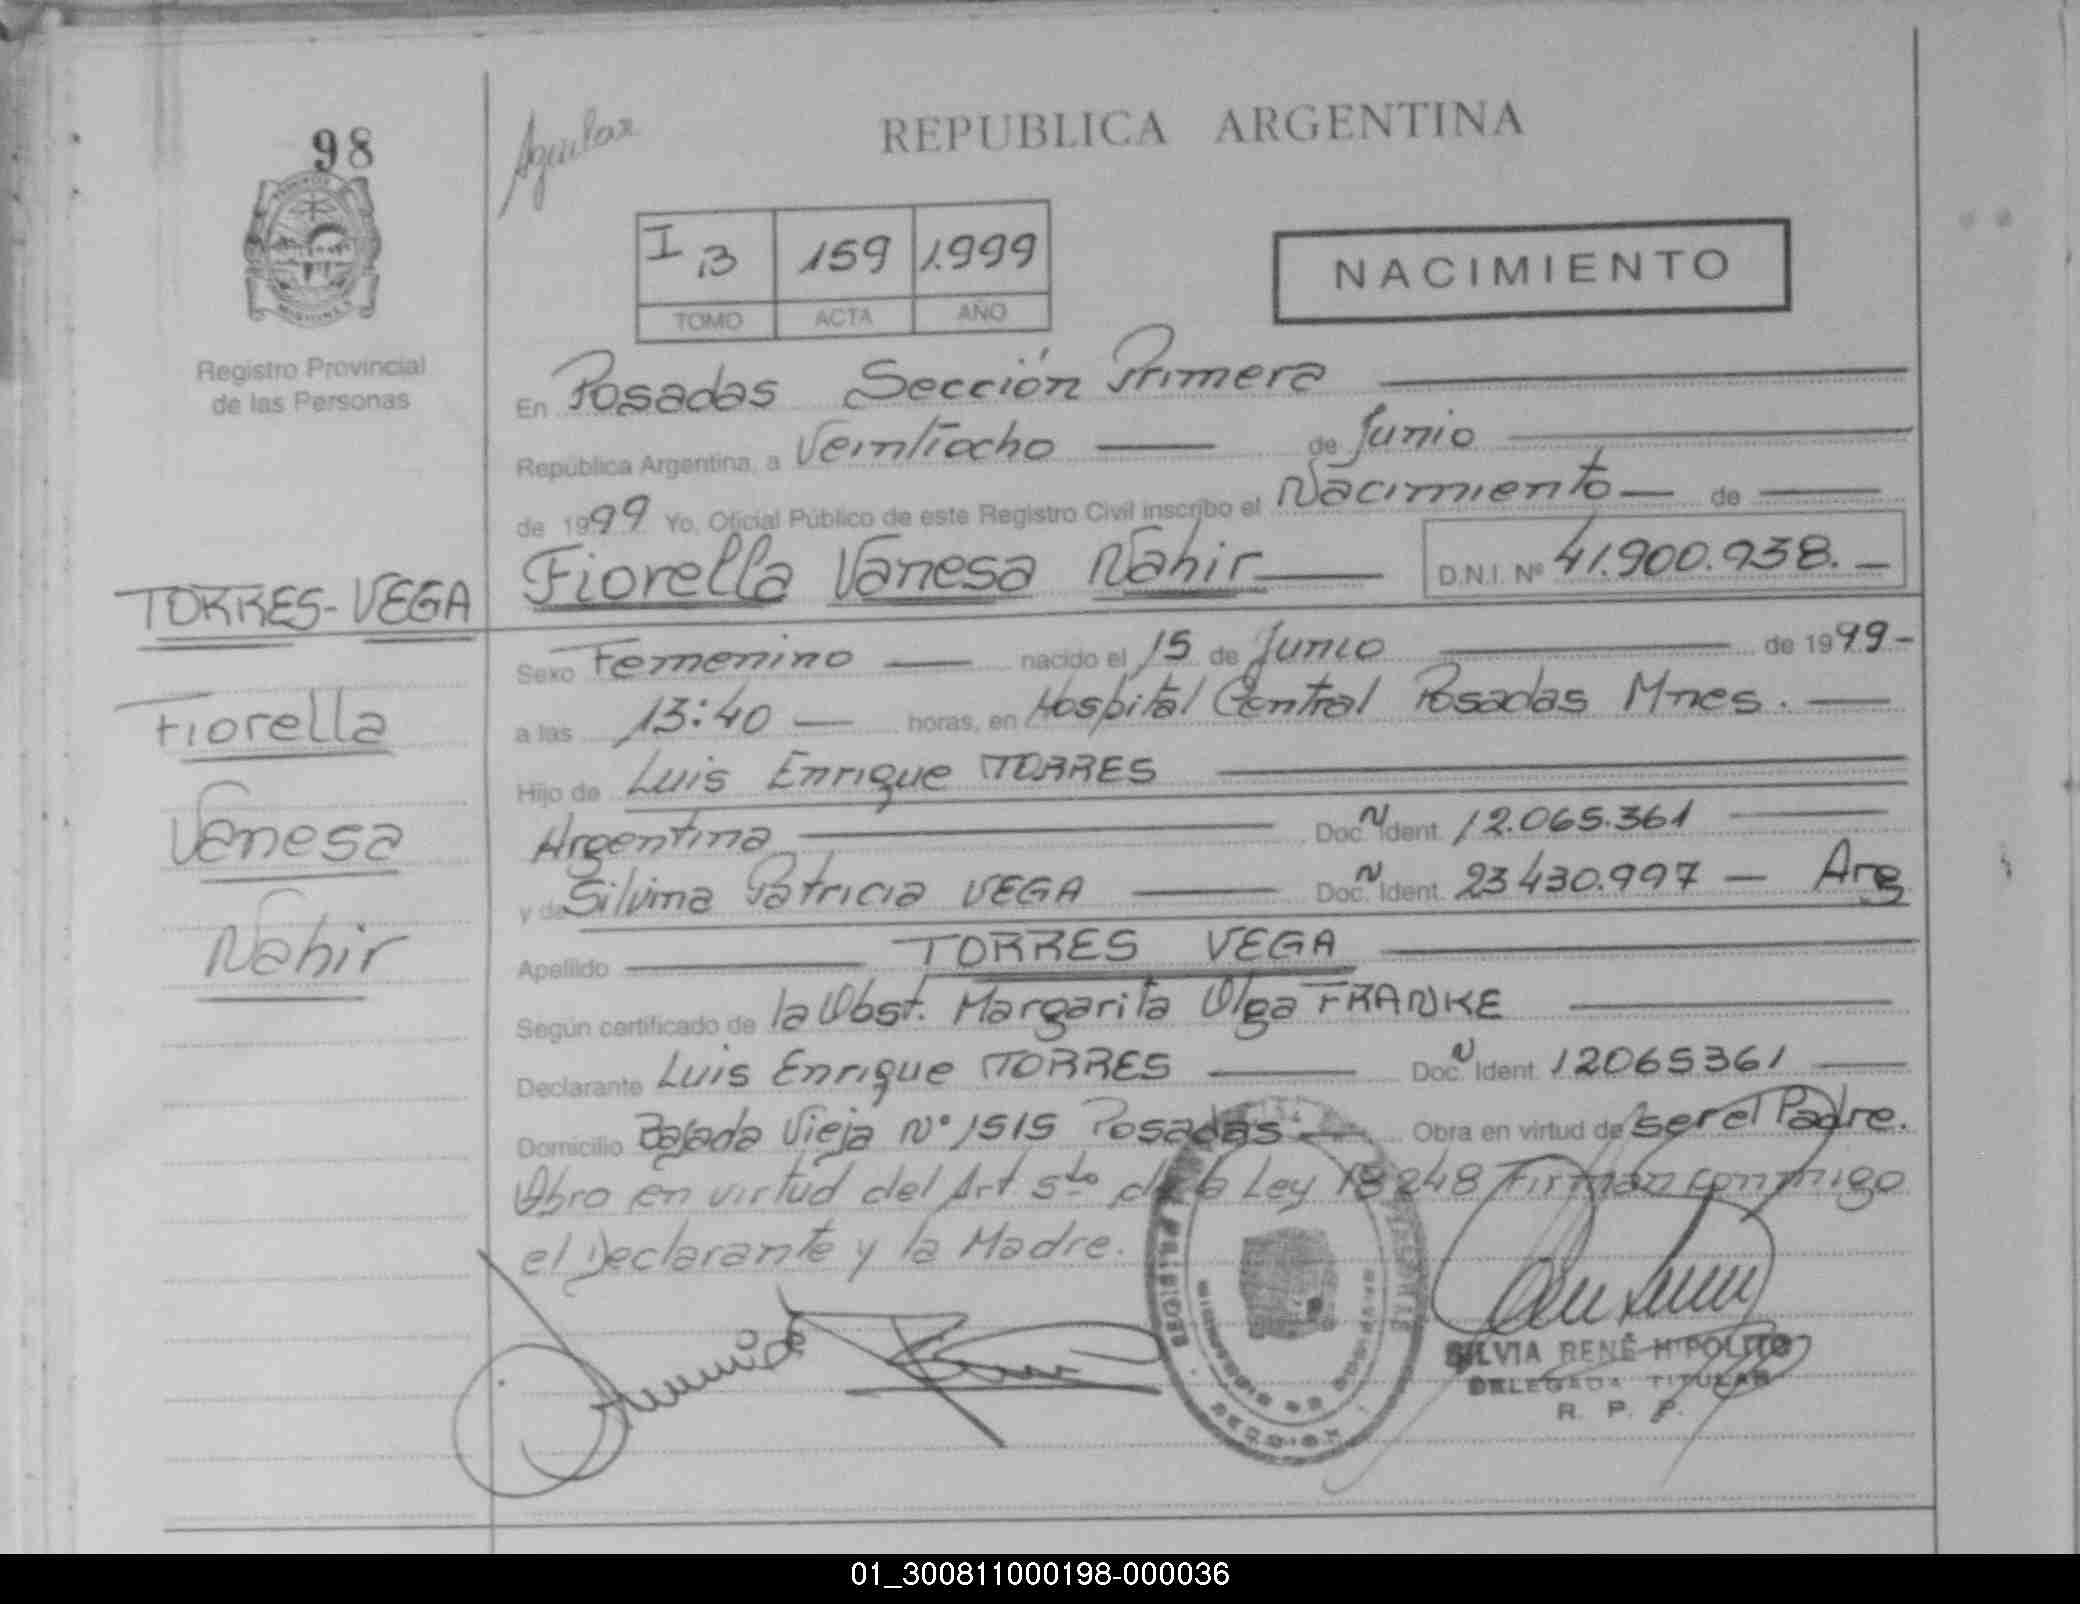 98
Aguilar
REPUBLICA ARGENTINA
I B 159 1.999
TOMO ACTA AÑO
NACIMIENTO
Registro Provincial
de las Personas
En Posadas Sección Primera
República Argentina, a Veintiocho de Junio
de 1999 Yo, Oficial Público de este Registro Civil inscribo el Nacimiento de
Fiorella Vanesa Nahir D.N.I. Nº 41.900.938.
TORRES-VEGA
Fiorella
Vanesa
Nahir
Sexo Femenino nacido el 15 de Junio de 1999
a las 13:40 horas, en Hospital Central Posadas Mnes.
Hijo de Luis Enrique TORRES
Argentina Doc. N Ident. 12.065.361
y de Silvina Patricia VEGA Doc. N Ident. 23430.997 Arg
Apellido TORRES VEGA
Según certificado de la Obst. Margarita Olga FRANKE
Declarante Luis Enrique TORRES Doc. N Ident. 12065361
Domicilio Bajada Vieja Nº 1515 Posadas Obra en virtud de ser el Padre.
Obro en virtud del Art 5to de la Ley 18248 Firman conmigo
el Declarante y la Madre.
SILVIA RENÉ HIPOLITO
DELEGADA TITULAR
R. P. P.
01_300811000198-000036